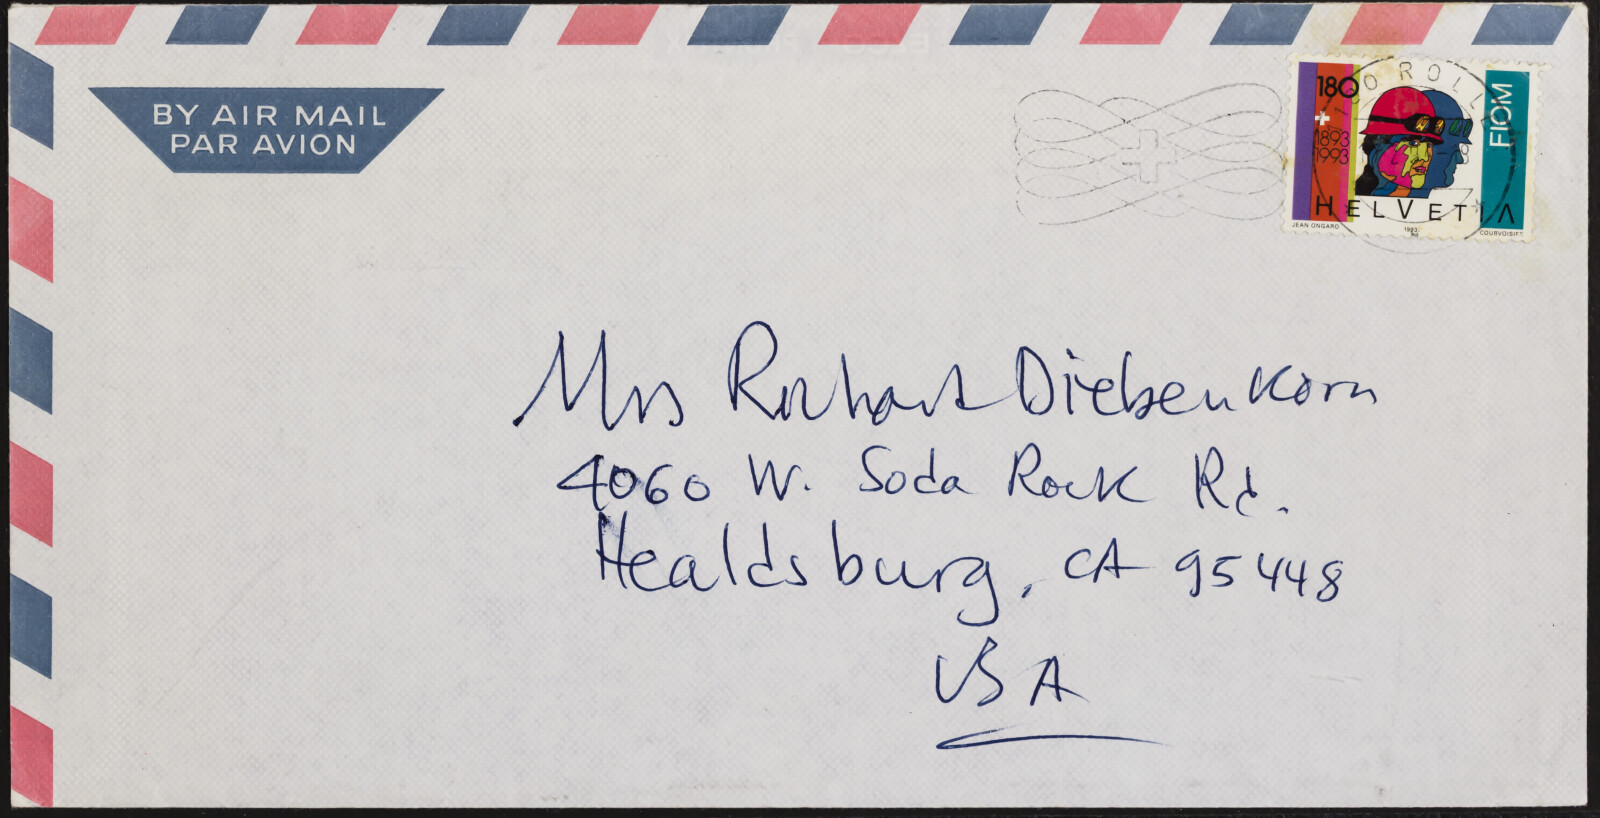 BY AIR MAIL
PAR AVION
180
1893
1993
FIOM
HELVETIA
JEAN ONGARO
1993
COURVOISIER
ROLLE
Mrs Richard Diebenkorn
4060 W. Soda Rock Rd.
Healdsburg, CA 95448
USA